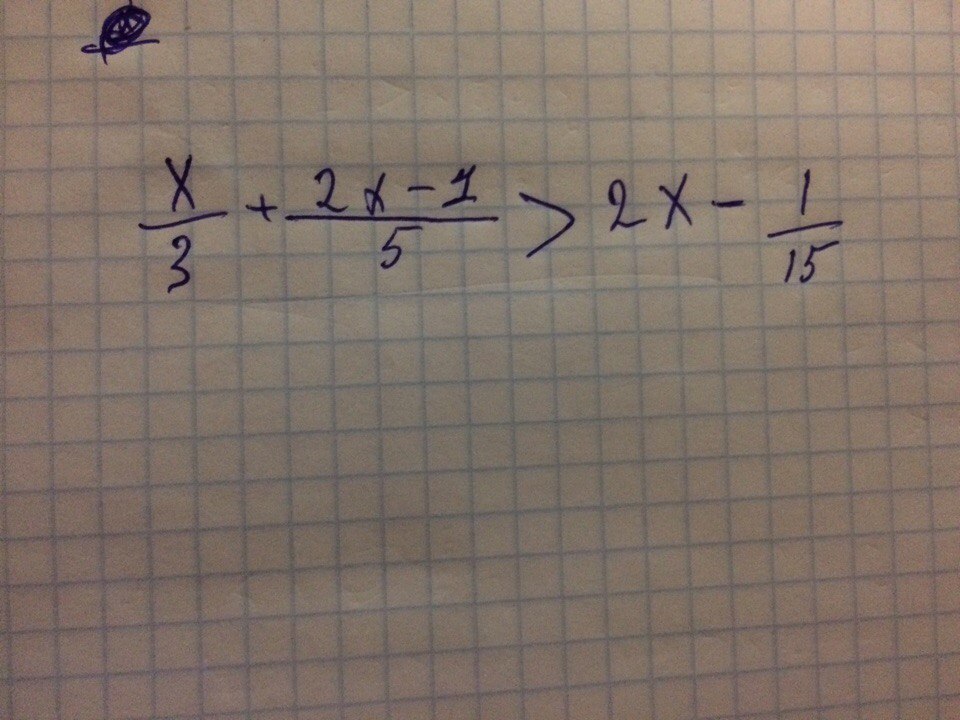 x/3 + (2x-1)/5 > 2x - 1/15